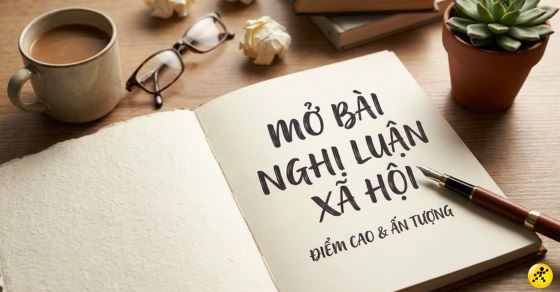 MỞ BÀI
NGHỊ LUẬN
XÃ HỘI
ĐIỂM CAO & ẤN TƯỢNG